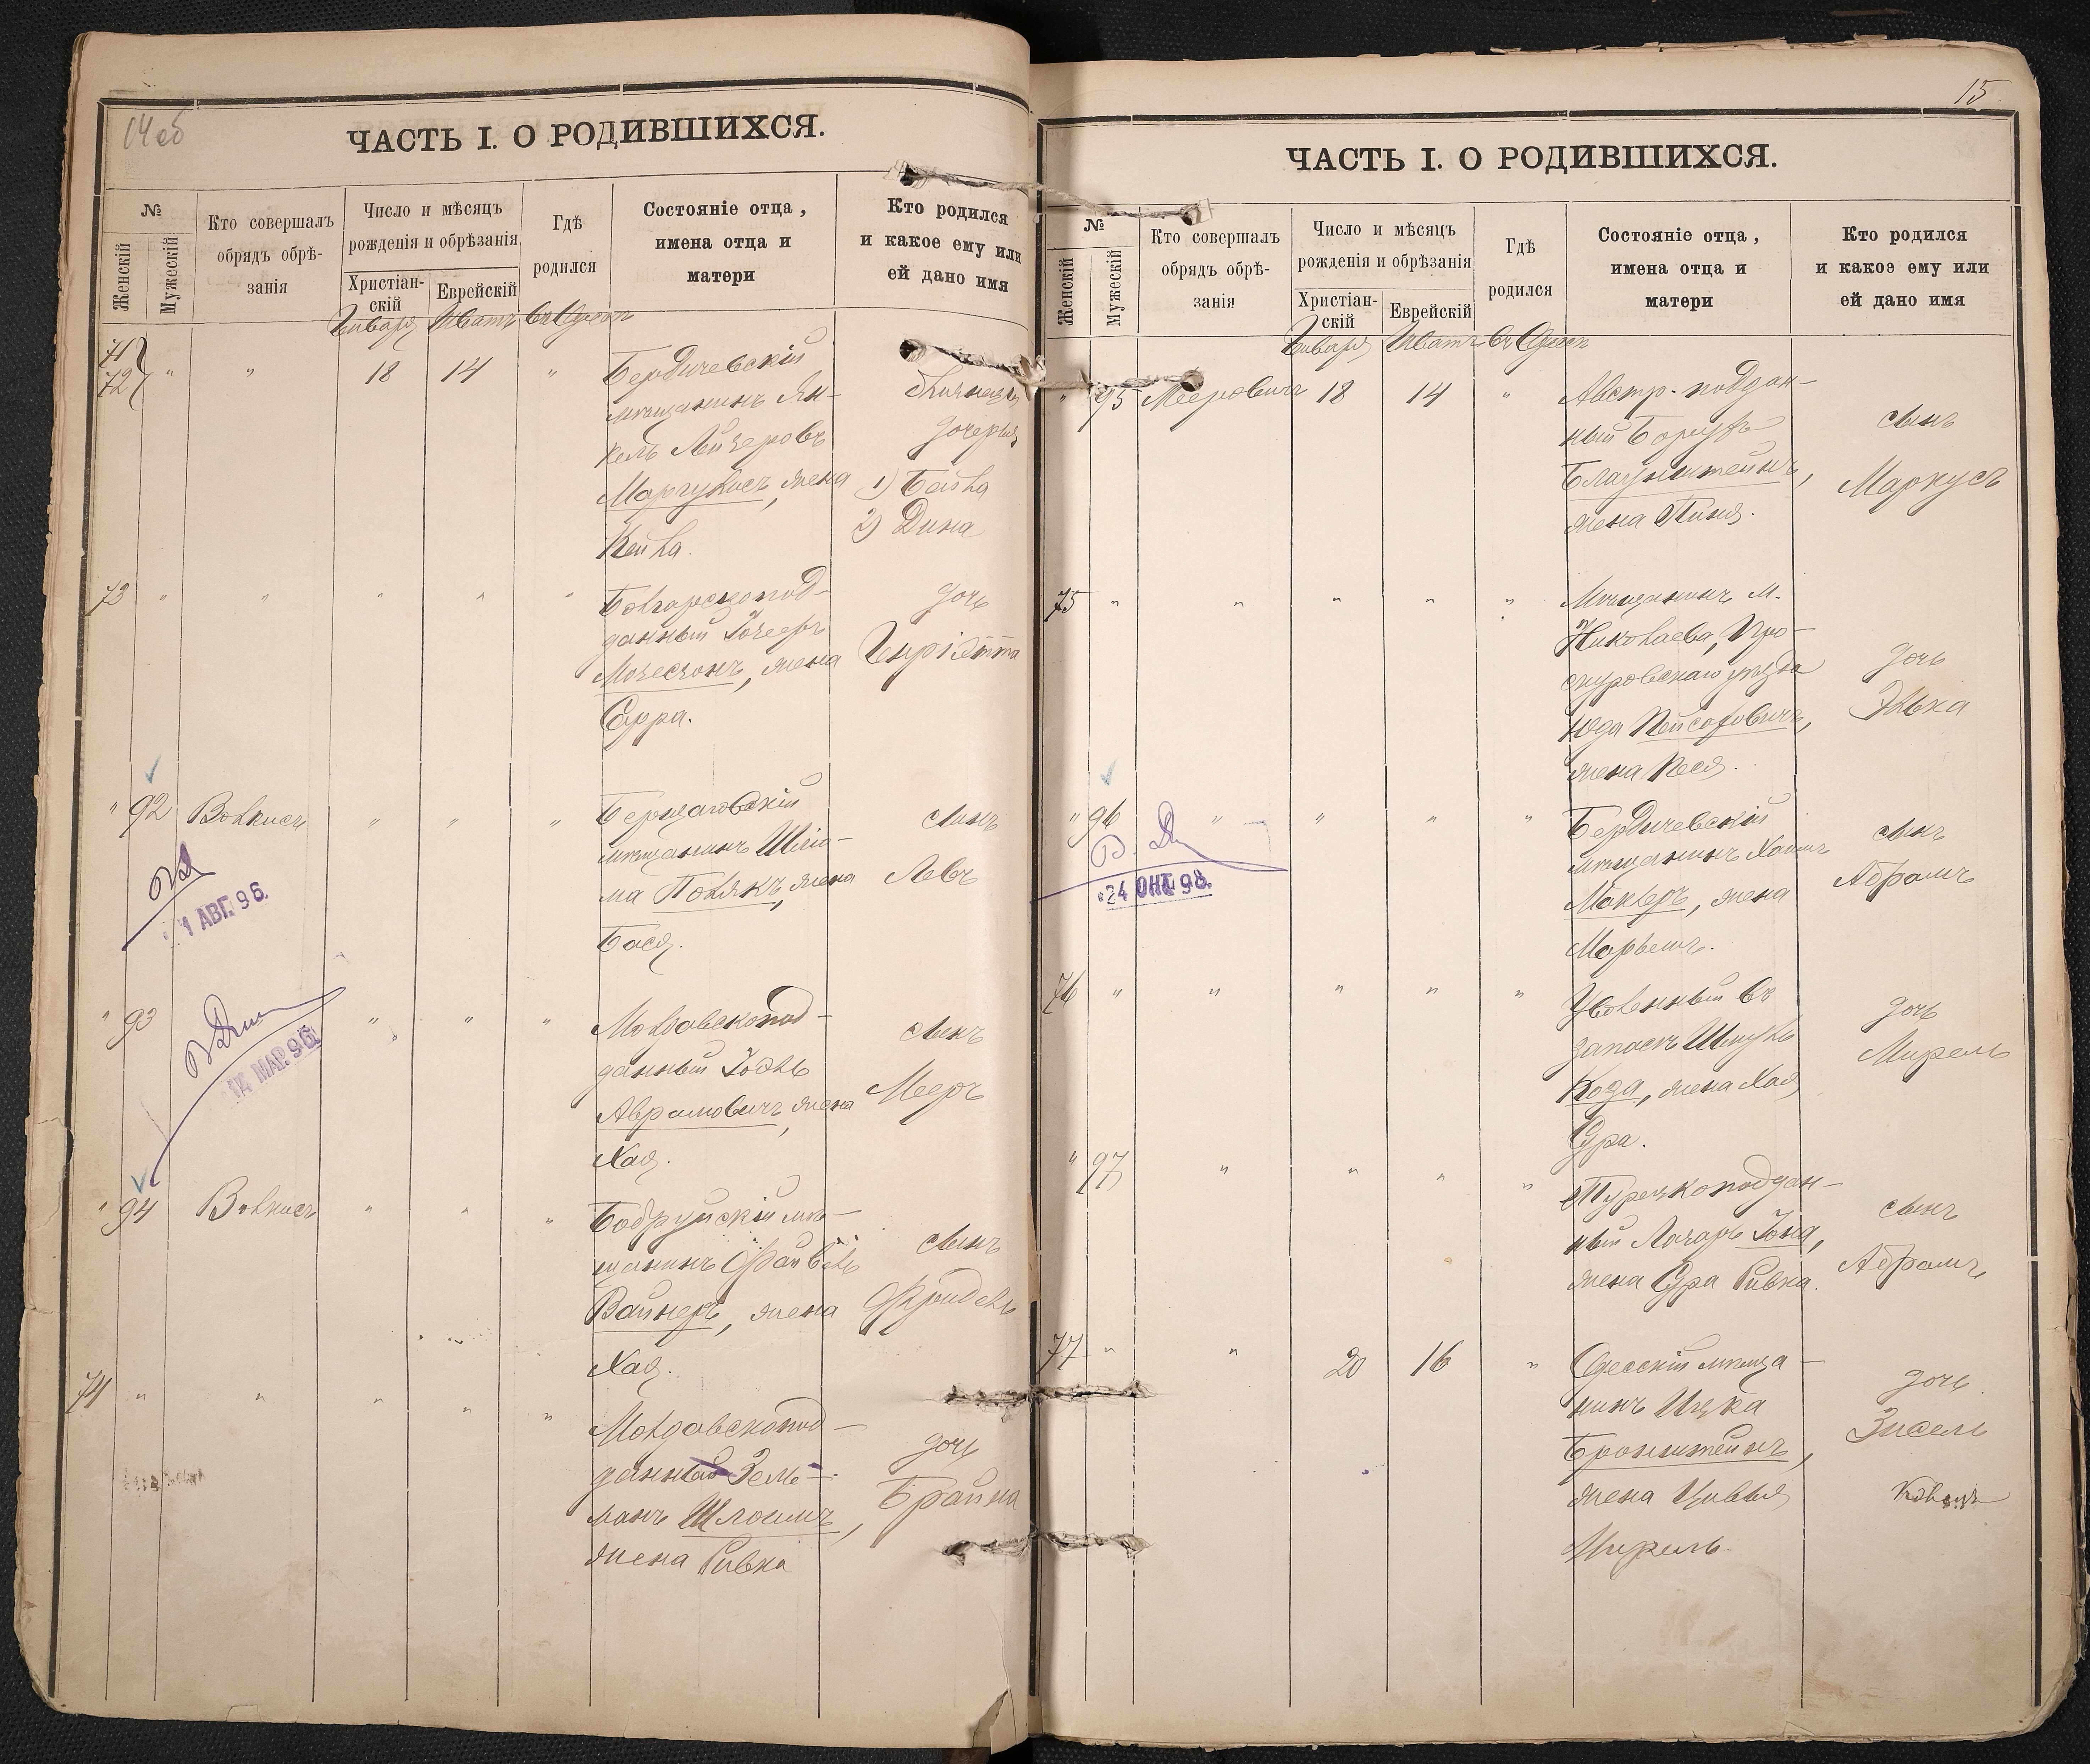 14об
ЧАСТЬ I. О РОДИВШИХСЯ.
№
Женскій
Мужескій
Кто совершалъ
обрядъ обрѣ-
занія
Число и мѣсяцъ
рожденія и обрѣзанія
Христіан-
скій
Еврейскій
Гдѣ
родился
Состояніе отца,
имена отца и
матери
Кто родился
и какое ему или
ей дано имя
Января Шватъ въ Одессѣ
71
72 " " 18 14 "
Бердичевскій
мѣщанинъ Ян-
кель Лейзеровъ
жена
дочерья
1) Бейла
2) Дина
Кейла.
73 " " " " "
Болгарскопод-
данный Іосефъ
жена
Сарра.
дочь
" 92 Волкисъ " " "
мѣщанинъ Шлio-
ма Полякъ, жена
Бася.
сынъ
Левъ
1 АВГ. 96.
" 93 " " "
Молдавскопод-
данный Іоэль
Аврамовичъ, жена
Хая.
сынъ
Мееръ
МАР. 96
" 94 Волкисъ " " "
Бобруйскій мѣ-
щанинъ Файвель
Вайнеръ, жена
Хая.
сынъ
Фридель
74 " " " " "
Молдавскопод-
данный Зель-
манъ Шлоимъ,
жена Ривка
дочь
Брайна
15
ЧАСТЬ I. О РОДИВШИХСЯ.
№
Женскій
Мужескій
Кто совершалъ
обрядъ обрѣ-
занія
Число и мѣсяцъ
рожденія и обрѣзанія
Христіан-
скій
Еврейскій
Гдѣ
родился
Состояніе отца,
имена отца и
матери
Кто родился
и какое ему или
ей дано имя
Января Шватъ въ Одессѣ
" 95 Мееровичъ 18 14 "
Австр.-поддан-
ный Борухъ
Блауштейнъ,
жена Пиня.
сынъ
Маркусъ
75 " " " " "
Мѣщанинъ м.
Николаева, Про-
скуровскаго уѣзда
Юда Пейсаховичъ,
жена Песя.
дочь
Элька
" 96 " " " "
Бердичевскій
мѣщанинъ Хаимъ
жена
Марьемъ.
сынъ
Абрамъ
24 ОКТ. 98.
76 " " " " "
Уволенный въ
запасъ Шмуль
Коза, жена Хая
Сура.
дочь
Мирель
" 97 " " " "
Турецкоподдан-
ный Лазарь Іона,
жена Сура Ривка.
сынъ
Абрамъ
77 " " 20 16 "
Одесскій мѣща-
нинъ Ицка
Бронштейнъ,
жена Цивья
Мирель.
дочь
Зисель